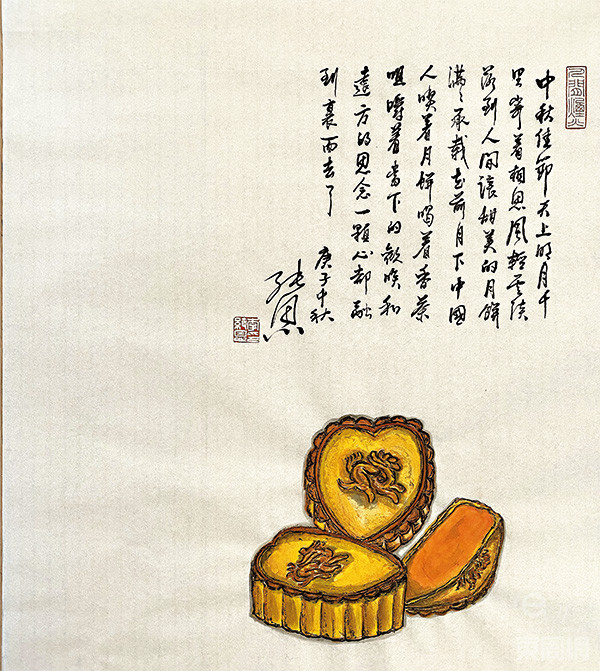 中秋佳節天上明月千
里寄着相思風輕雲淡
落到人間讓甜美的月餅
滿々承載花前月下中國
人喫着月餅喝着香茶
咀嚼着當下的歡和
遠方的思念一顆心都融
到裏面去了
庚子中秋